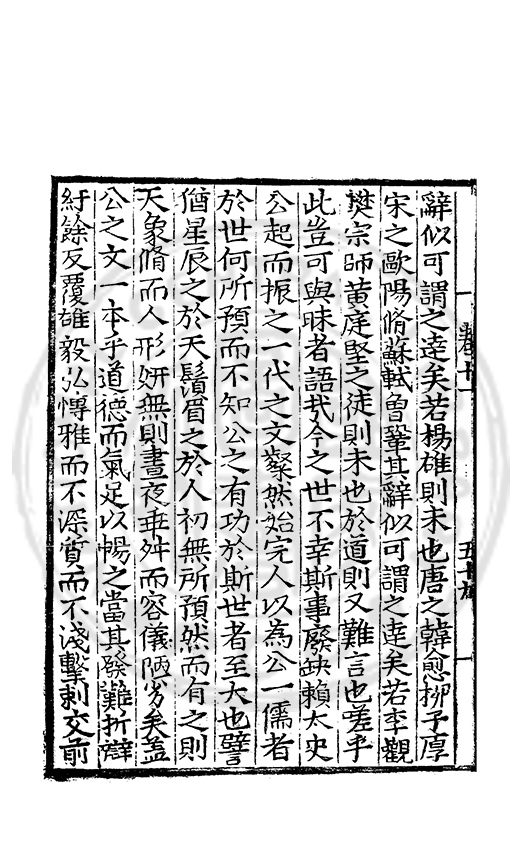 卷十一　五十九
辭似可謂之達矣若楊雄則未也唐之韓愈柳子厚
宋之歐陽脩蘇軾曾鞏其辭似可謂之達矣若李觀
樊宗師黃庭堅之徒則未也於道則又難言也嗟乎
此豈可與昧者語㢤今之世不幸斯事廢缺賴太史
公起而振之一代之文粲然始完人以為公一儒者
於世何所預而不知公之有功於斯世者至大也譬
猶星辰之於天鬚眉之於人初無所預然而有之則
天象脩而人形妍無則晝夜乖舛而容儀陋劣矣盖
公之文一本乎道德而氣足以暢之當其發難折辯
紆餘反覆雄毅弘愽雅而不深質而不淺擊刺交前